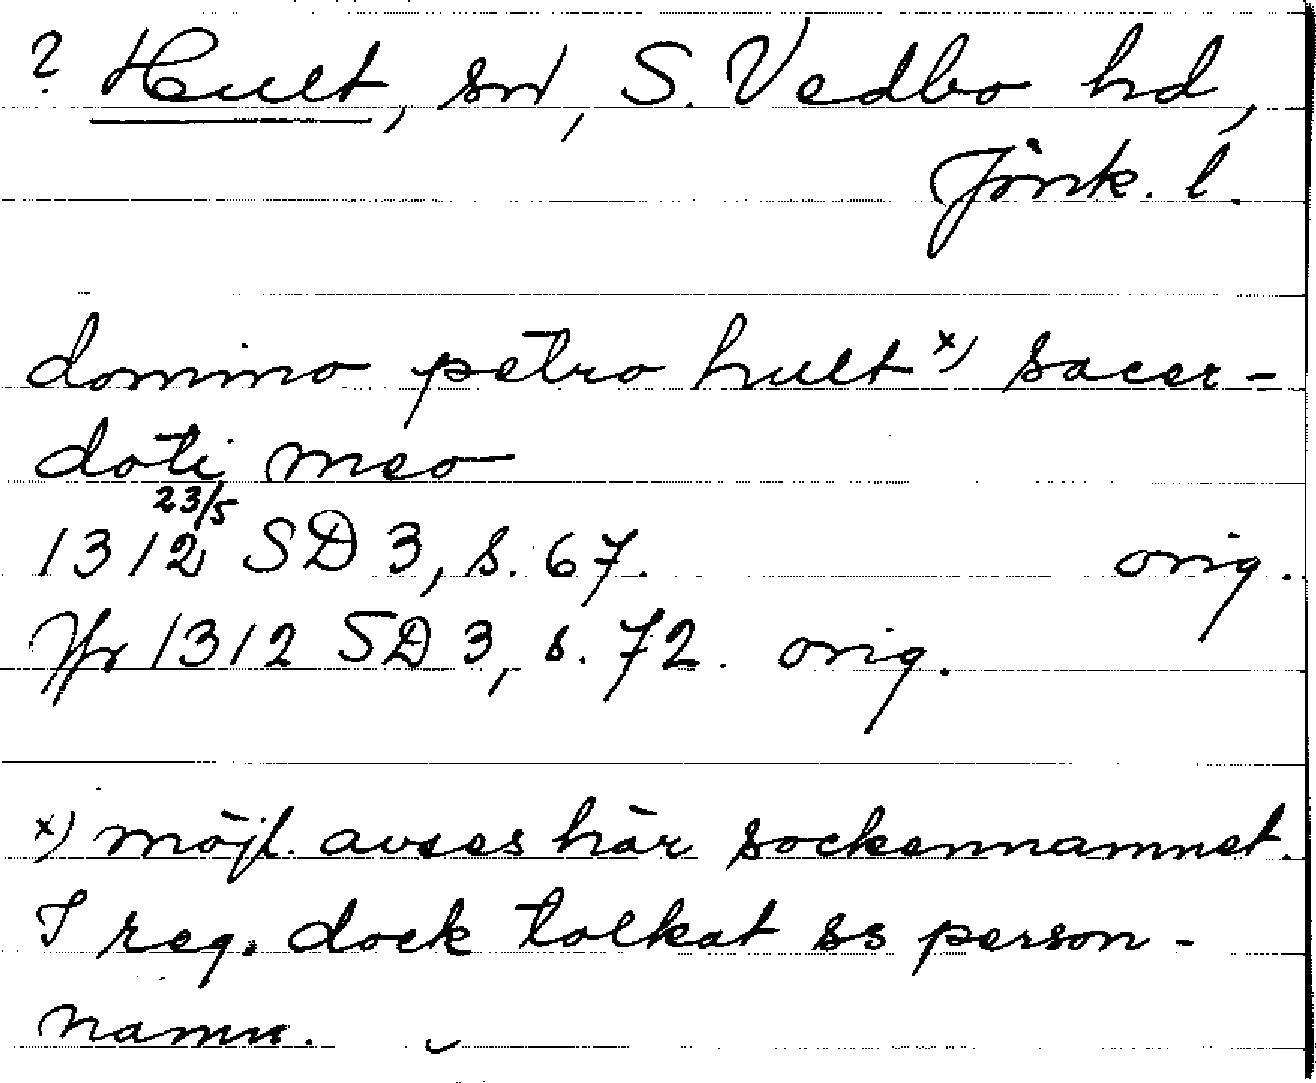 ? Hult, sn, S. Vedbo hd,
Jönk. l.
domino petro hult x) sacer-
doti meo
23/5
1312 SD 3, s. 67. orig.
Jfr 1312 SD 3, s. 72. orig.
x) möjl. avses här sockennamnet.
I reg. dock tolkat ss person-
namn.